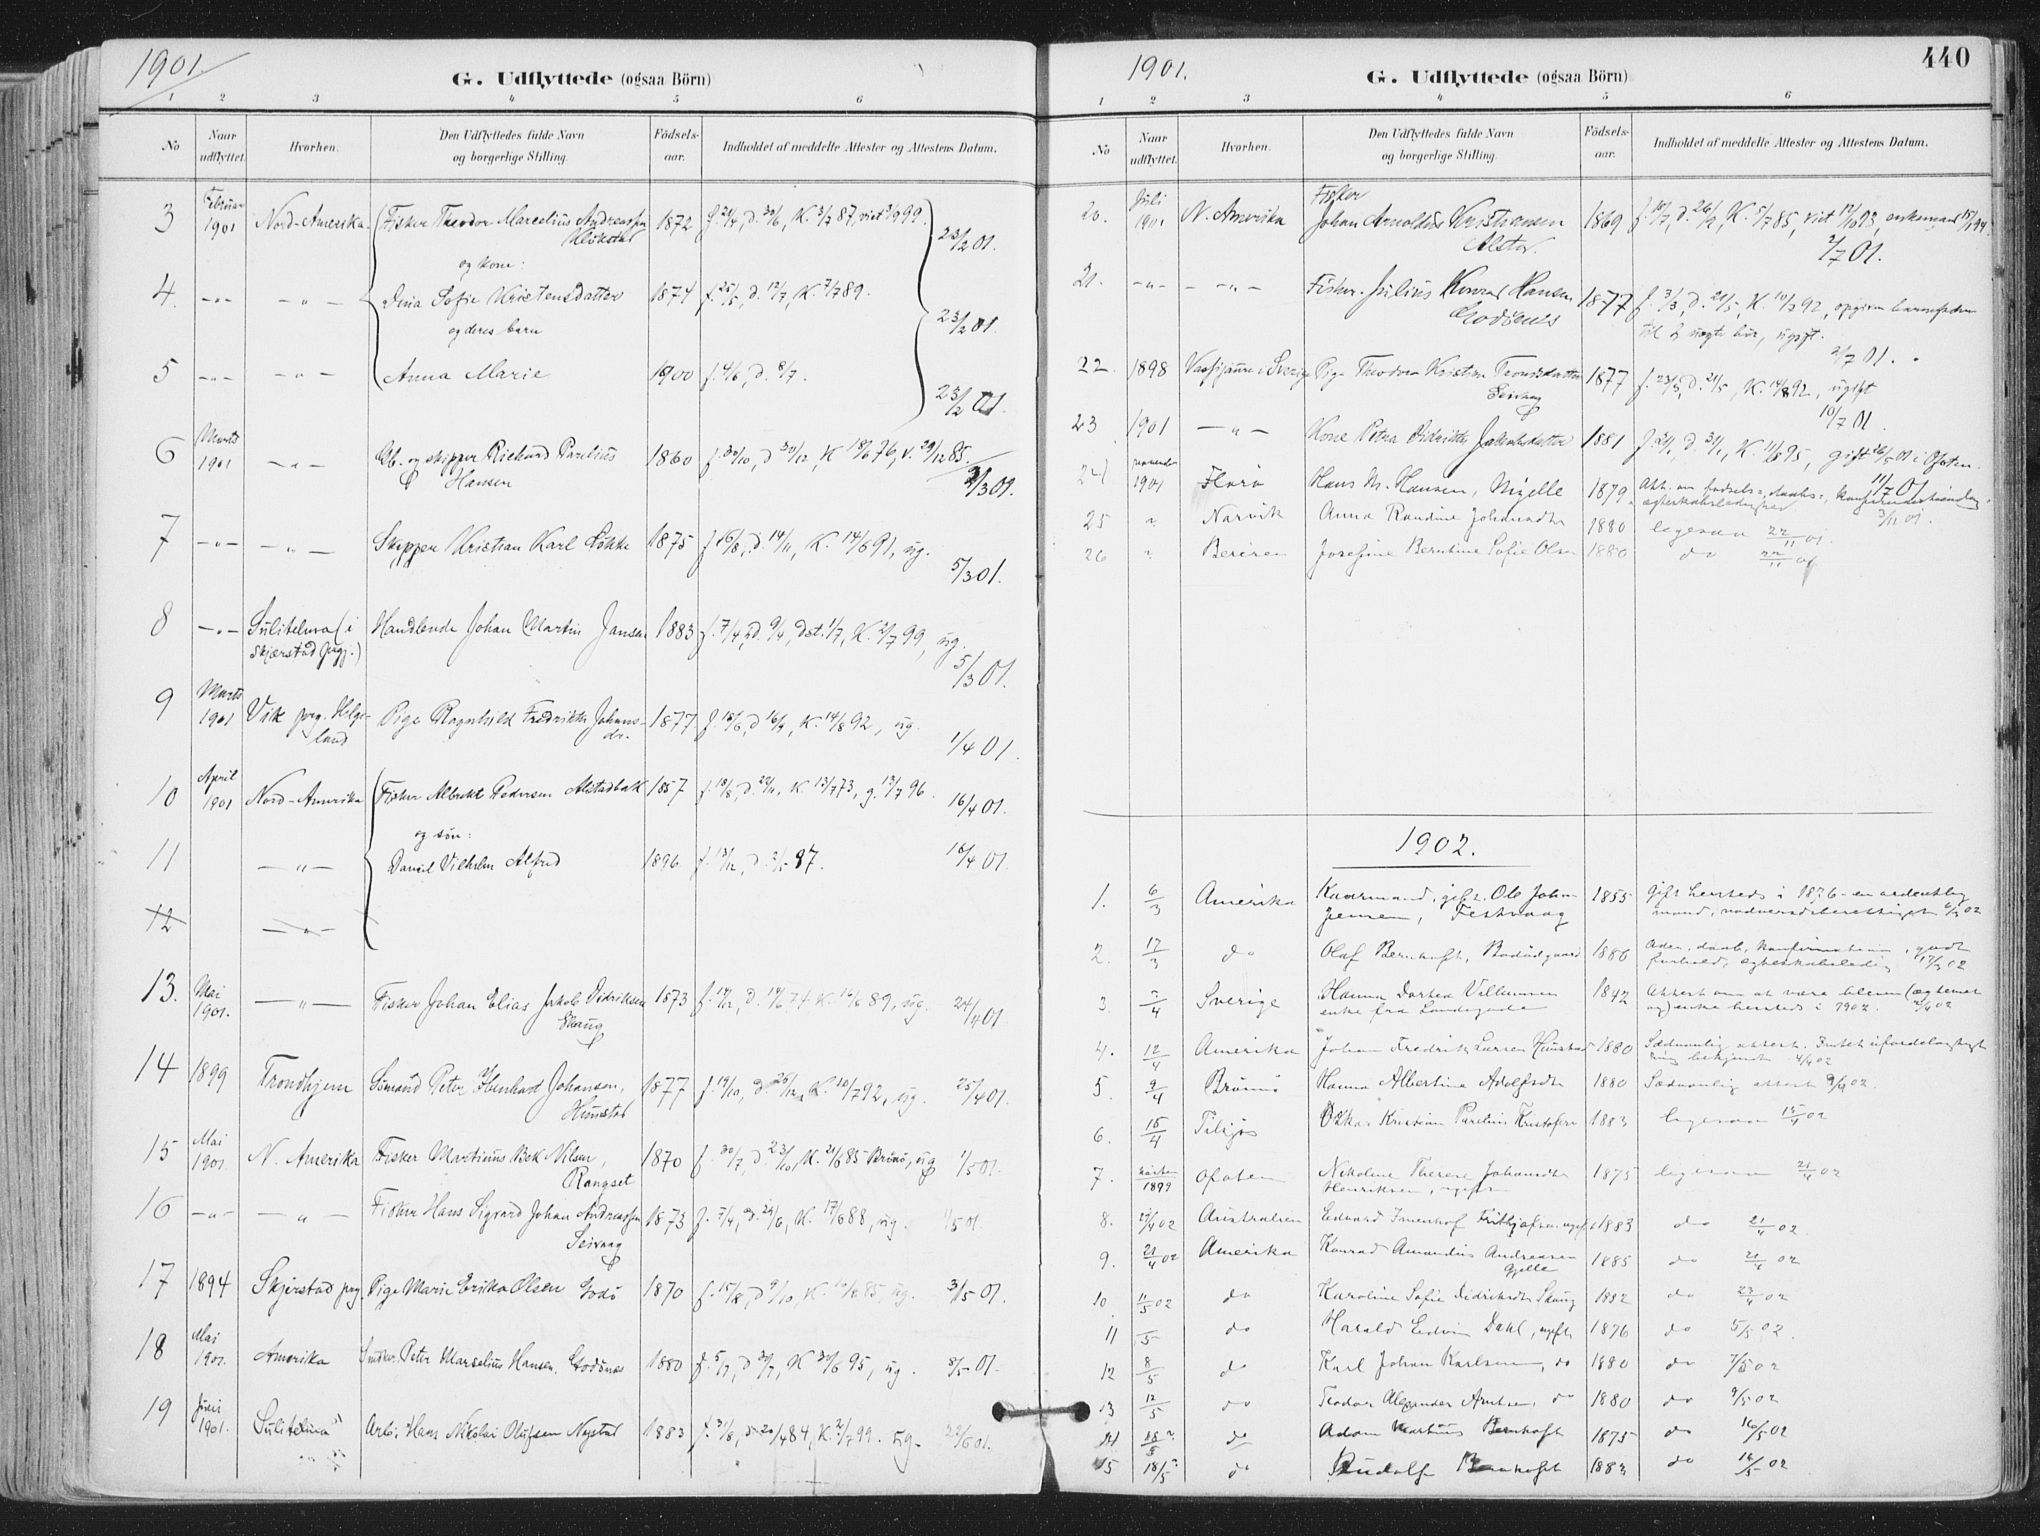 1901.
G. Udflyttede (ogsaa Börn)
1 2 3 4 5 6
No
Naar udflyttet.
Hvorhen.
Den Udflyttedes fulde Navn og borgerlige Stilling.
Födsels-aar.
Indholdet af meddelte Attester og Attestens Datum.
3 Februar 1901 Nord-Amerika. Fisker Theodor Marcelius Andreassen 1872 f. 21/4, d. 30/6, K. 3/7 87, viet 3/9 99. 23/2 01.
og kone:
4. -„- -„- Dina Sofie Kristensdatter 1874 f. 25/5, d. 12/7, K. 7/7 89. 23/2 01.
og deres barn
5 -„- -„- Anna Marie 1900 f. 4/6, d. 8/7. 23/2 01.
6 Marts 1901 -„- og skipper Richard Parelius 1860 f. 30/10, d 30/12, K 18/6 76, v. 29/12 85.
Hansen /3 01.
7 -„- -„- Skipper Kristian Karl Løkke 1875 f. 16/8, d. 14/11, K. 14/6 91, ug.
5/3 01.
8 -„- Sulitelma (i Handlende Johan Martin Jansen 1883 f. 7/4, d. 9/4, døt. 1/7, K. 2/7 99, ug.
Skjerstad prgj.) 5/3 01.
9 Marts 1901 Vik prg. Helgeland Pige Ragnhild Fredrikke Johansdr. 1877 f. 18/6, d 16/9, K. 14/8 92, ug.
1/4 01.
10 April 1901 Nord-Amerika Fisker Albrekt Pedersen Alstadbak 1857 f. 18/8, d. 22/11, K 13/7 73, g. 13/7 96. 16/4 01.
og søn:
11 -„- Daniel Vilhelm Alfred 1896 f. 13/12, d. 2/5 97. 16/4 01.
12 -„-
13. Mai 1901. -„- Fisker Johan Elias Jakob Didriksen 1873 f. 14/12, d. 14/6 74 K. 14/6 89, ug. 24/4 01.
Skaug
14 1899 Trondhjem Sömand Peter Bernhard Johansen, 1877 f. 19/10, d. 26/12, K. 10/7 92, ug. 25/4 01.
Hunstad
15 Mai 1901. N. Amerika Fisker Martinus Bek Nilsen, 1870 f. 30/7, d. 23/10, K. 21/6 85 Brönö, ug 1/5 01.
Rangset
16 -„- -„- Fisker Hans Sigvard Johan Andreassen 1873 f. 7/4, d. 29/6, K. 17/6 88, ug. 1/5 01.
Seivaag
17 1894 Skjerstad prg. Pige Marie Erika Olsen Godö 1870 f. 15/8, d 9/10, K. 16/8 85, ug. 3/5 01.
18 Mai 1901. Amerika Peter Marselius Hansen, Godönes 1880 f. 5/7, d. 30/7, K 30/6 95, ug. 8/5 01.
19 Juni 1901. Sulitelma Arb. Hans Nikolai Olufsen Nystad 1883 f. 31/8, d 20/4 84, K. 2/7 99. ug. 22/6 01.
1901.
G. Udflyttede (ogsaa Börn)
440
1 2 3 4 5 6
No
Naar udflyttet.
Hvorhen.
Den Udflyttedes fulde Navn og borgerlige Stilling.
Födsels-aar.
Indholdet af meddelte Attester og Attestens Datum.
20. Juli 1901 N. Amerika Fisker
Johan Arnoldus Kristiansen 1869 f. 10/7, d. 26/9, K. 5/7 85, viet 12/10 93, enkemand 15/1 94.
Alstad. 2/7 01.
21. -„- -„- Fisker Julius Konrad Hansen 1877 f. 3/3, d. 21/5, K. 10/7 92, opgiven barnefader
Godönes til 2 uægte bör, ugift.
2/7 01.
22. 1898 Vassijaure i Sverige Pige Theodora Kristina Tronsdatter 1877 f. 23/3, d. 21/5, K. 14/8 92, ugift
Seivaag 10/7 01.
23 1901 -„- Kone Petra Didrikke Jakobsdatter 1881 f. 21/1, d. 31/1, K. 11/8 95, gift 26/5 01 i Ofoten.
11/7 01
24 november 1901 Florø Hans M. Hansen, Mjelle 1879. Att. om fødsels-, daabs-, konfirmationsdag,
3/11 01.
25 „ Narvik Anna Randine Johansdt 1880 ligesaa 22/11 01.
26 „ Beiren Josefine Berntine Sofie Olsen 1880 do 22/11 01
1902.
1. 6/3 Amerika Kaarmand, gift. Ole Johan 1855 gift hersteds i 1876 - en ordentlig
Jensen, Festvaag mand, nadverdsberettiget 6/3 02
2. 17/3 do Olaf Bernhoft, Bodøgaard 1886 daab, konfirmation, godt
forhold, egteskabsledig 17/3 02
3. 2/4 Sverige Hanna Dortea Villumsen 1842 Attest om at være bleven (ægteviet
enke fra Landegode og) enke hersteds i 1902. 2/4 02
4. 12/4 Amerika Johan Fredrik Larsen Hunstad 1880 Sædvanlig attest. Intet ufordelagtigt
bekjendt. 4/4 02
5. 9/4 Brönnö Hanna Albertine Adolfsdt 1880 Sædvanlig attest 9/4 02.
6. 15/4 Oskar Kristian Parelius Kristofersen 1883 ligesaa 15/4 02
7. høsten 1899 Ofoten Nikoline Therese Johansdt 1875 ligesaa 21/4 02
Henriksen, ugift
8. 21/4 02 Australien Edvard Fritjofsen, ugift 1883 do 21/4 02.
9. 21/4 02 Amerika Konrad Amandus Andreasen 1885 do 21/4 02
Gjelle
10 11/5 02 do Karoline Sofie Didriksdt Skaug 1882 do 23/4 02
11 /5 do Harald Edvin Dahl, ugift 1876 do 5/5 02.
12 8/5 do Karl Johan Karlsen, do 1880 do 7/5 02
13 12/5 do Teodor Alexander Arntsen, do 1880 do 9/5 02
14 do Adam Martinus Bernhoft 1875 do 16/5 02
15 18/5 do Rudolf Bernhoft 1883 do 16/5 02